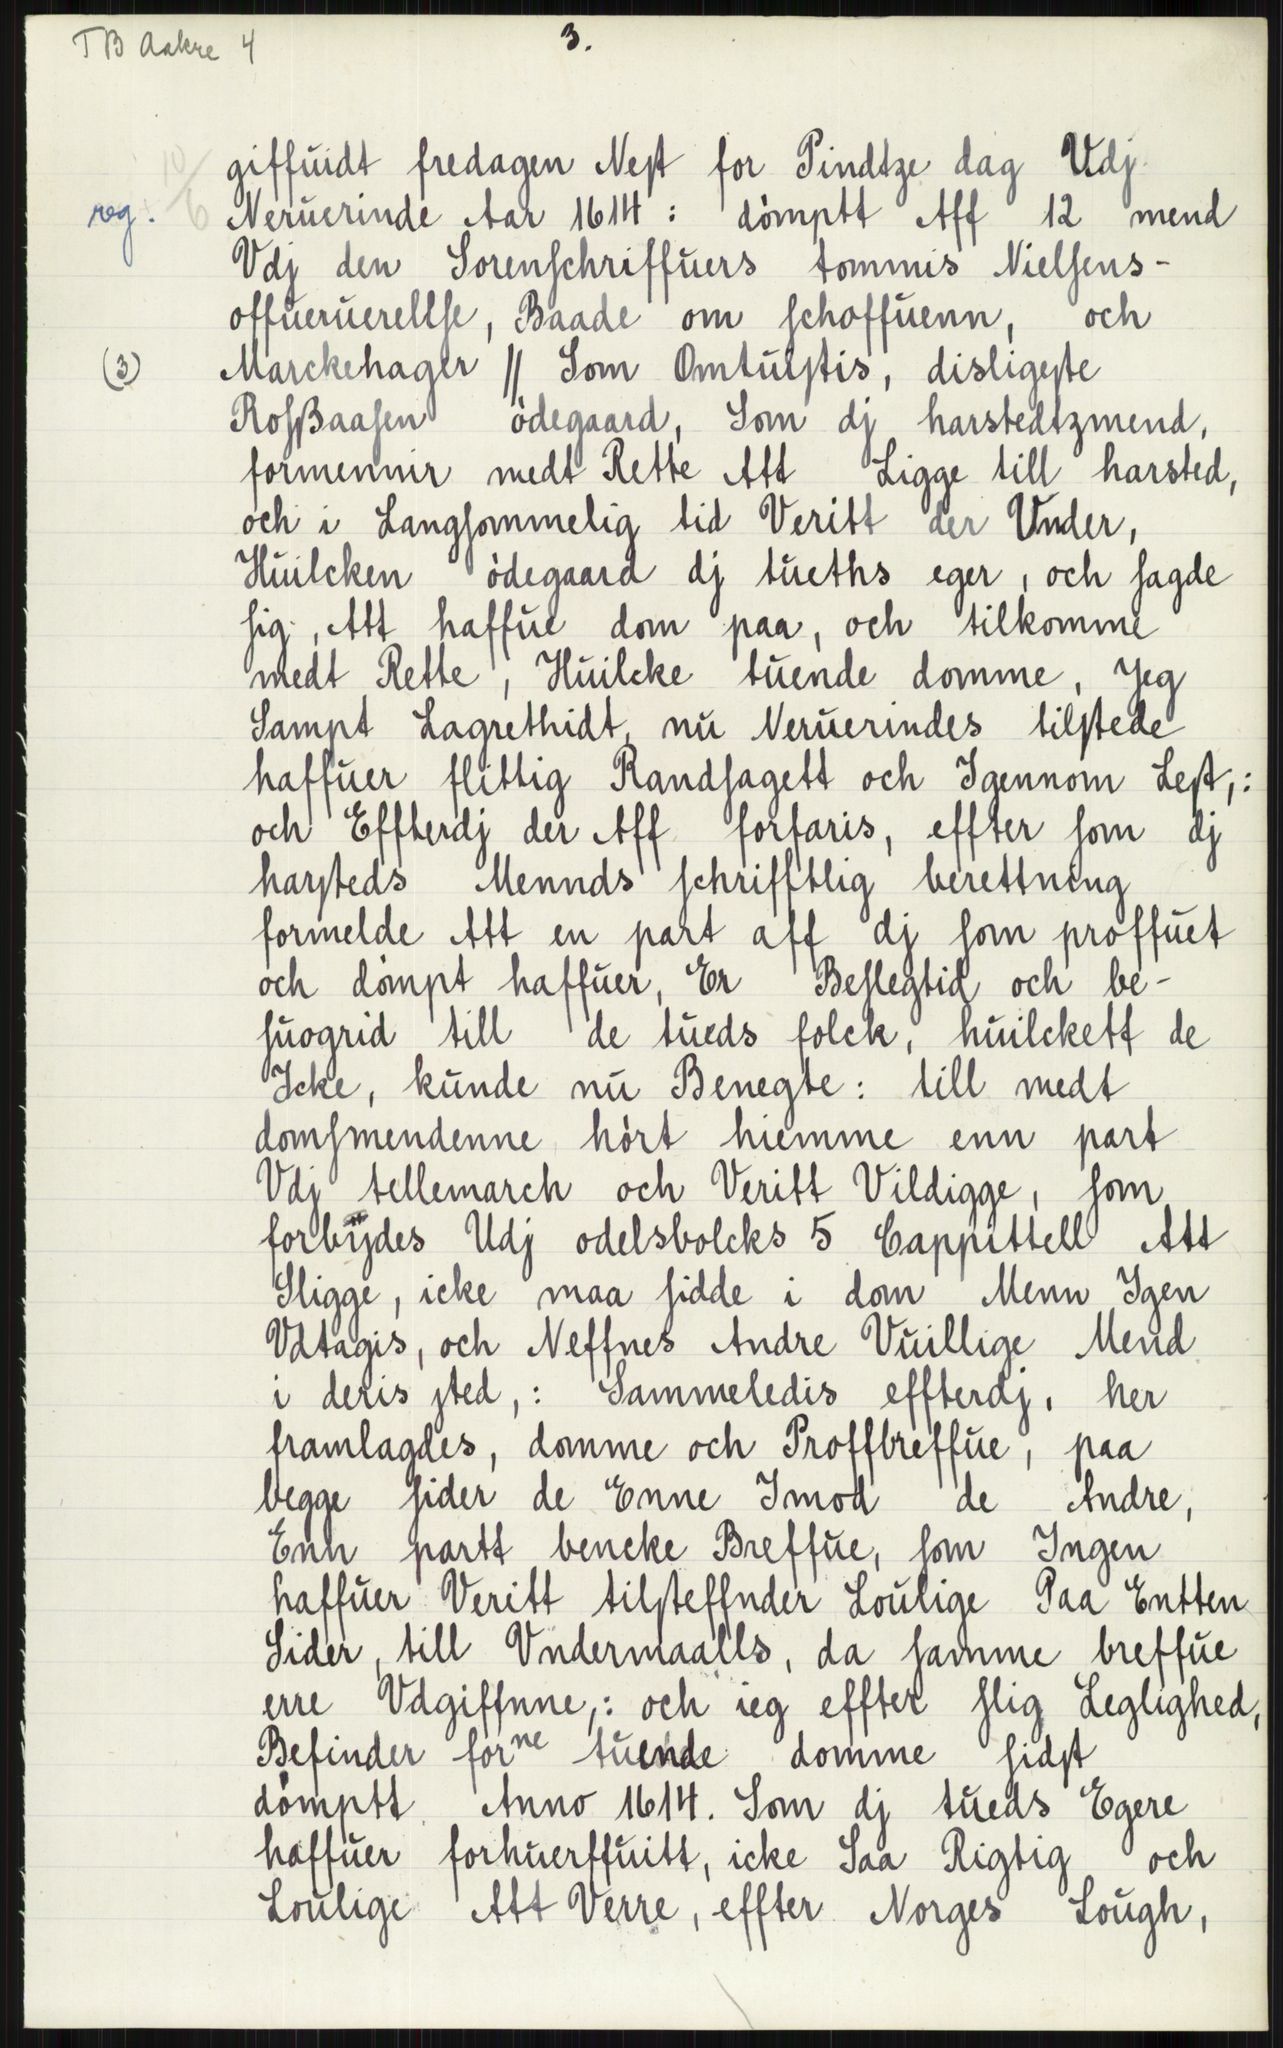 TB Aakre 4
3.
giffuidt fredagen Nest for Pindtze dag Vdj
reg. 10/6 Neruerinde Aar 1614: dömptt Aff 12 mend
Vdj den Sorenschriffuers tommis Nielsens-
offueruerellse, Baade om schoffuenn, och
(3) Marckehager // Som Omtulstis, disligeste
Rosßaasen ödegaard, Som dj harstedtzmend,
formennir medt Rette Att Ligge till harsted,
och i Langsommelig tid Veritt der Vnder,
Huilcken ödegaard dj tueths eger, och sagde
sig, Att haffue dom paa, och tilkomme
medt Rette, Huilcke tuende domme, Jeg
Sampt Lagrethidt, nu Neruerindes tilstede
haffuer flittig Randsagett och Igennom Lest,:
och Effterdj der Aff forfaris, effter som dj
harsteds Mennds schrifftlig berettning
formelde Att en part aff dj som proffuet
och dömpt haffuer, Er Beslegtid och be-
suogrid till de tueds folck, huilckett de
Icke, kunde nu Benegte: till medt
domsmendenne hört hiemme enn part
Vdj tellemarch och Veritt Vildigge, som
forbÿdes Udj odelsbolcks 5 Cappittell Att
Sligge, icke maa sidde i dom Menn Igen
Vdtagis, och Neffnes Andre Vuillige Mend
i deris sted,: Sammeledis effterdj, her
framlagdes, domme och Proffbreffue, paa
begge sider de Enne Imod de Andre,
Enn partt bencke Breffue, som Ingen
haffuer Veritt tilsteffnder Loulige Paa Entten
Sider, till Vndermaalls, da samme breffue
erre Vdgiffnne,: och ieg effter slig Leglighed,
Befinder forne tuende domme sidst
dömptt Anno 1614. Som dj tueds Egere
haffuer forhuerffuitt, icke Saa Rigtig och
Loulige Att Verre, effter Norges Lough,